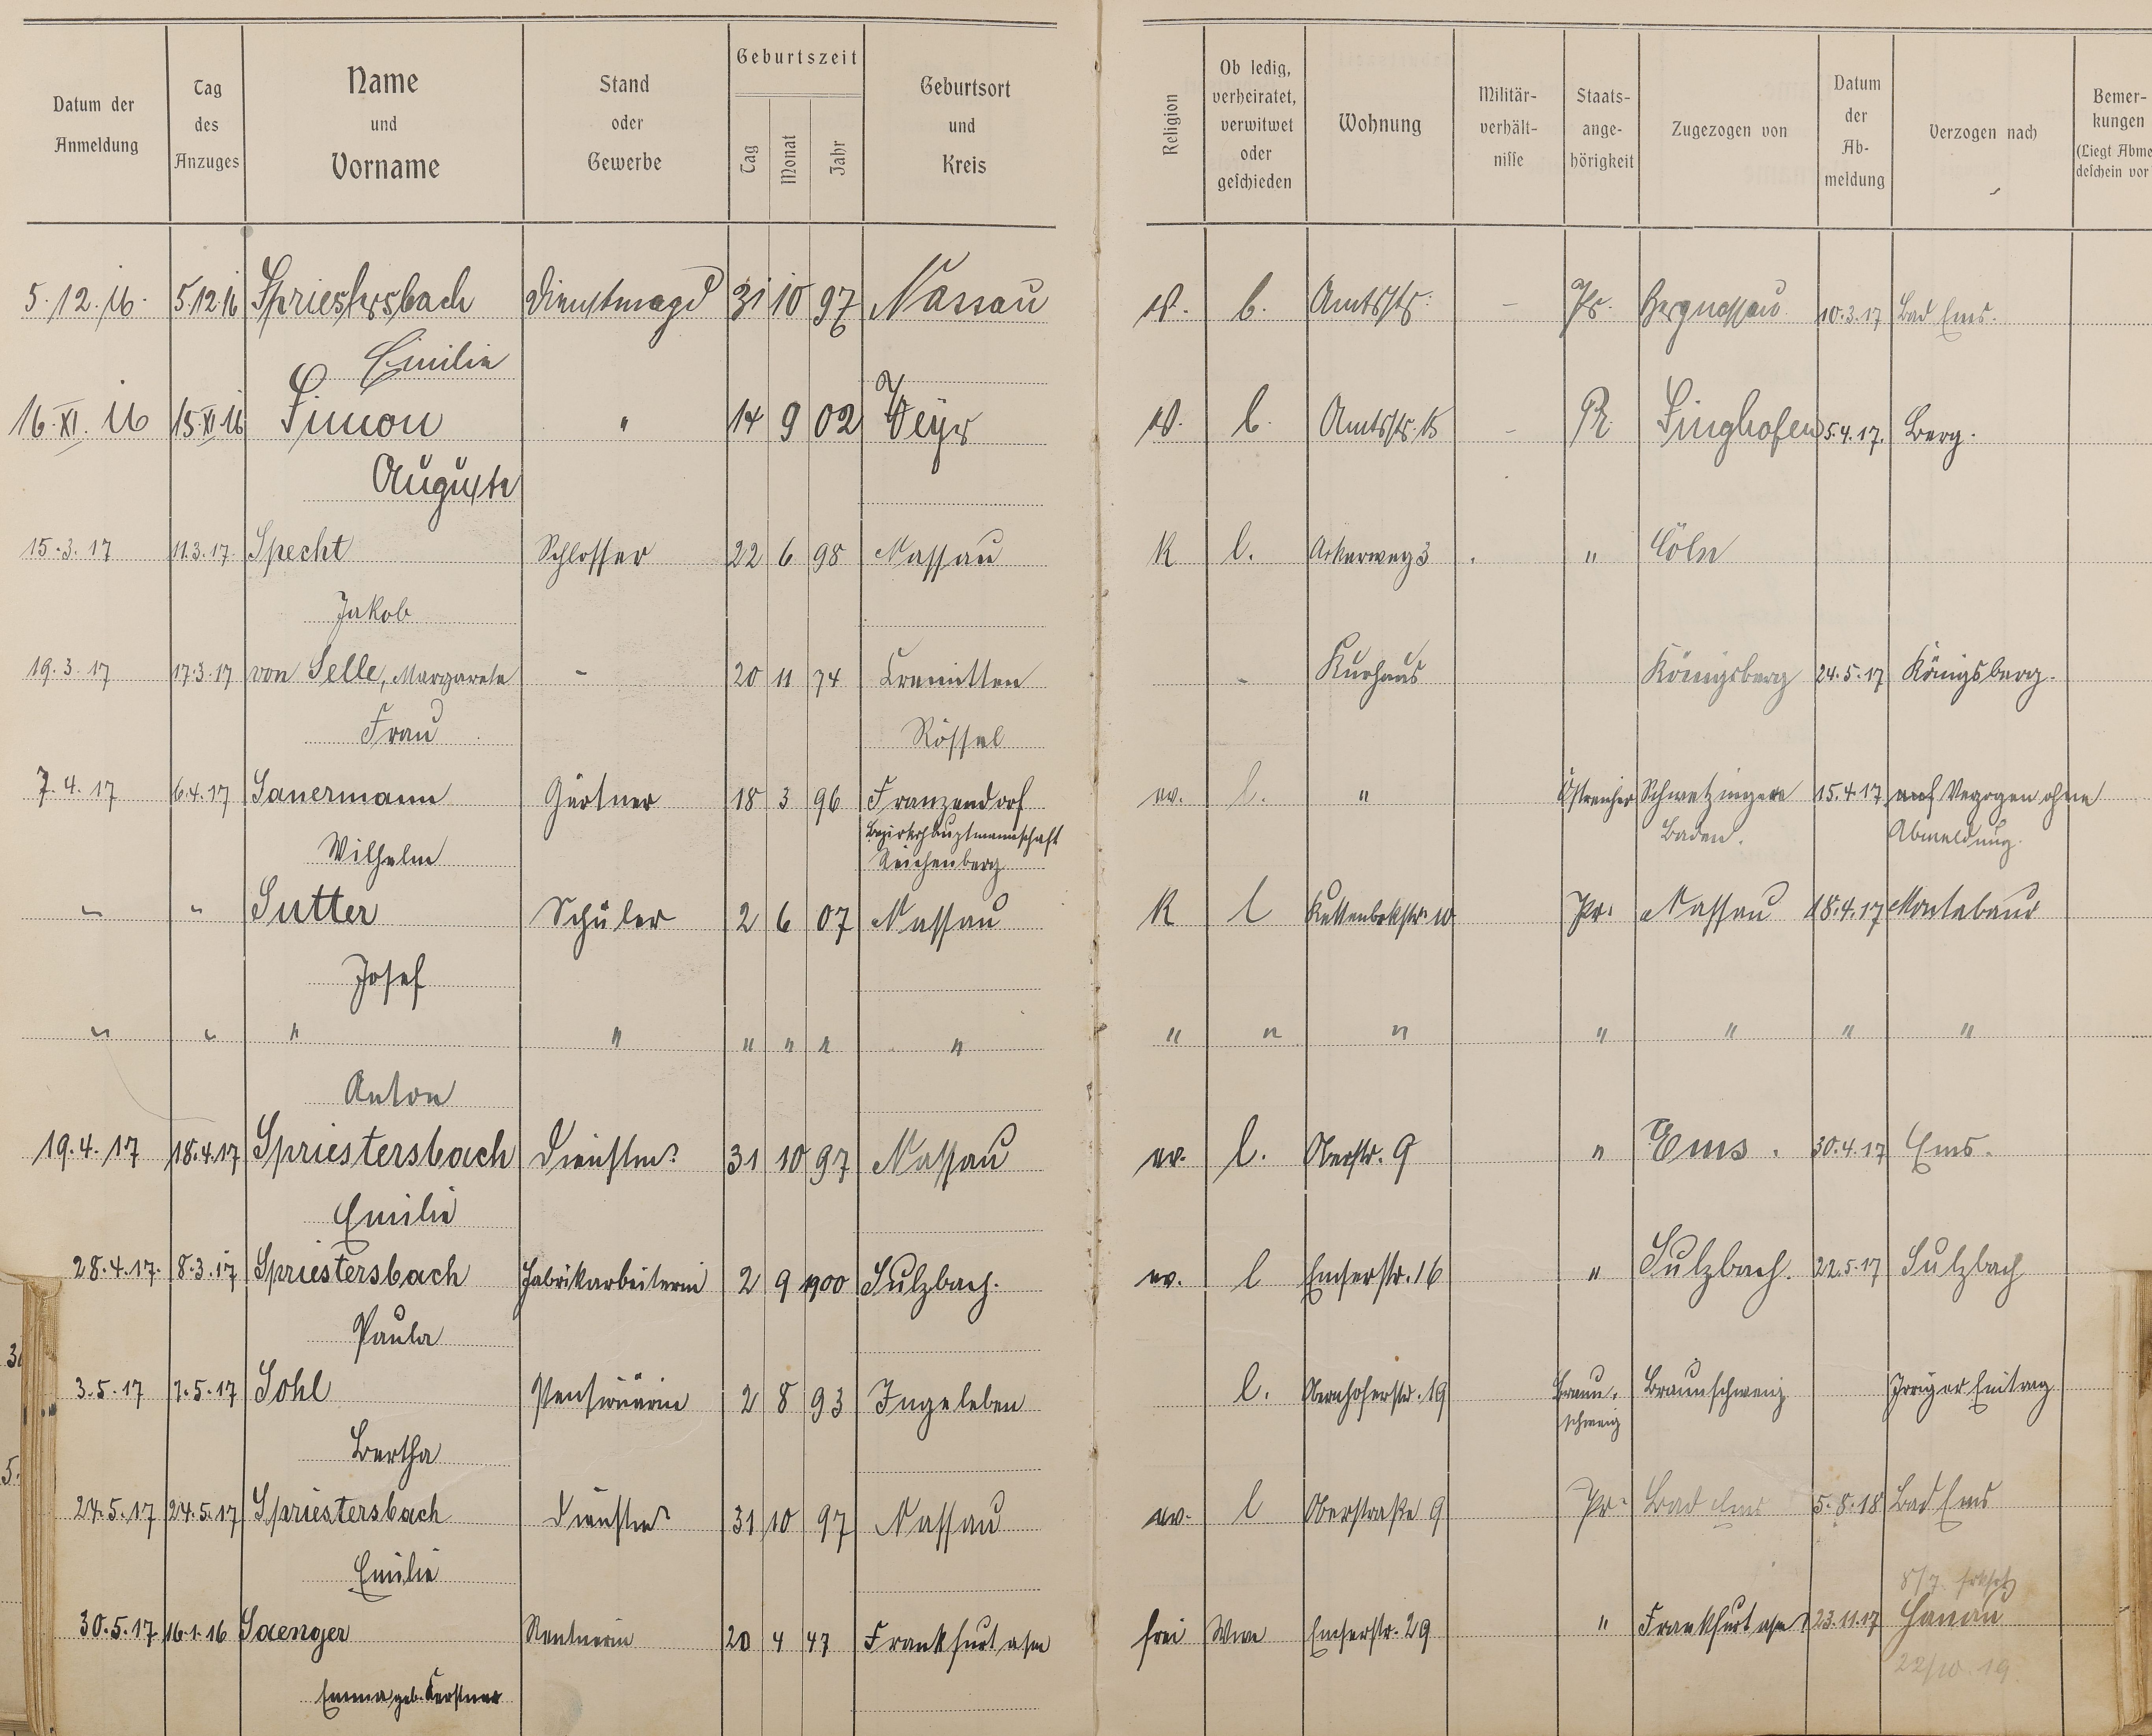 Datum der Anmeldung | Tag des Anzuges | Name und Vorname | Stand oder Gewerbe | Geburtszeit Tag Monat Jahr | Geburtsort und Kreis | Religion | Ob ledig, verheiratet, verwitwet oder geschieden | Wohnung | Militär-verhält-nisse | Staats-ange-hörigkeit | Zugezogen von | Datum der Ab-meldung | Verzogen nach | Bemer-kungen (Liegt Abme deschein vor
5.12.16. 5.12.16 Spriestersbach Dienstmagd 31 10 97 Nassau l. Amtsstr. - Pr. Bergnassau 10.3.17 Bad Ems.
Emilie
16.XI.16 15.XI.16 Simon " 14 9 02 Weyer l. Amtsstr. 15 - Pr. Singhofen 5.4.17. Berg.
Auguste
15.3.17 11.3.17. Specht Schlosser 22 6 98 Nassau K l. Ackerweg 3 " Cöln
Jakob
19.3.17 17.3.17 von Selle, Margarete - 20 11 74 Cremitten - Kurhaus Königsberg 24.5.17 Königsberg.
Frau Rössel
7.4.17 6.4.17 Sauermann Gärtner 18 3 96 Franzendorf ev. l. " Östreicher Schwetzingen 15.4.17 Verzogen ohne
Bezirkshauptmannschaft Baden. Abmeldung.
Wilhelm Reichenberg
" " Sutter Schüler 2 6 07 Nassau K l 10 Pr. Nassau 18.4.17 Montabaur
Josef
" " " " " " " " " " " " " " "
Anton
19.4.17 18.4.17 Spriestersbach Dienstm. 31 10 97 Nassau ev. l. Oberstr. 9 " Ems. 30.4.17 Ems.
Emilie
28.4.17. 8.3.17 Spriestersbach Fabrikarbeiterin 2 9 1900 Sulzbach. ev. l Emserstr. 16 " Sulzbach. 22.5.17 Sulzbach
Paula
3.5.17 1.5.17 Sohl Pensionärin 2 8 93 Ingeleben l. Obernhoferstr. 19 Braun- Braunschweig Irriger Eintrag
schweig
Bertha
24.5.17 24.5.17 Spriestersbach Dienstm. 31 10 97 Nassau ev. l Oberstraße 9 Pr. Bad Ems 5.8.18 Bad Ems
Emilie
30.5.17 16.1.16 Saenger Rentnerin 20 4 47 Frankfurt a/m frei Wwe Emserstr. 29 " Frankfurt a/m 23.11.17 Hanau
22/10.19.
Emma geb. Kerstner